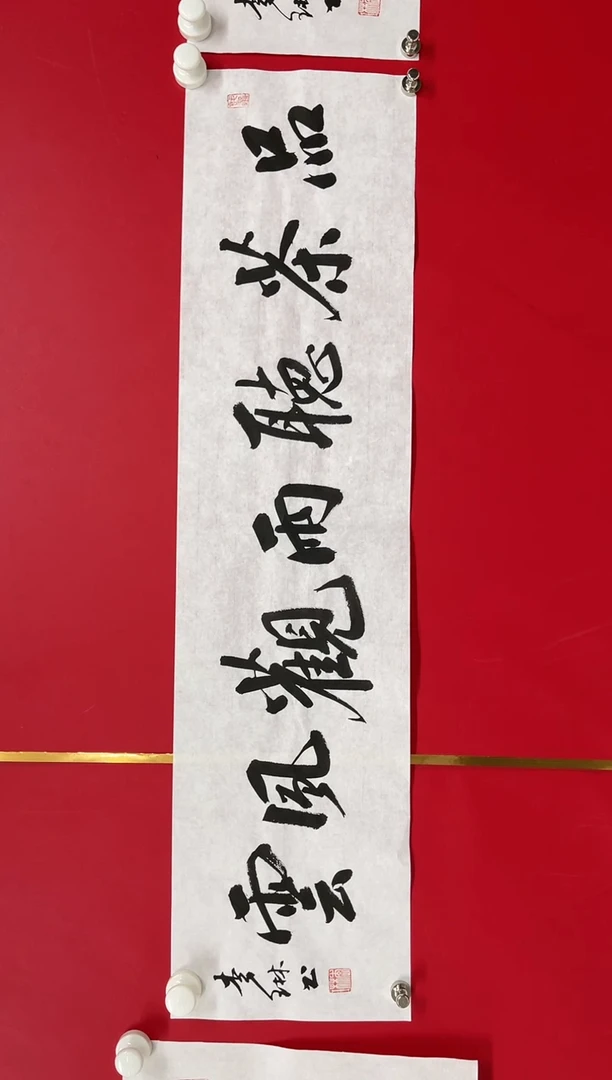 品茶聽雨觀風雲
李琳书